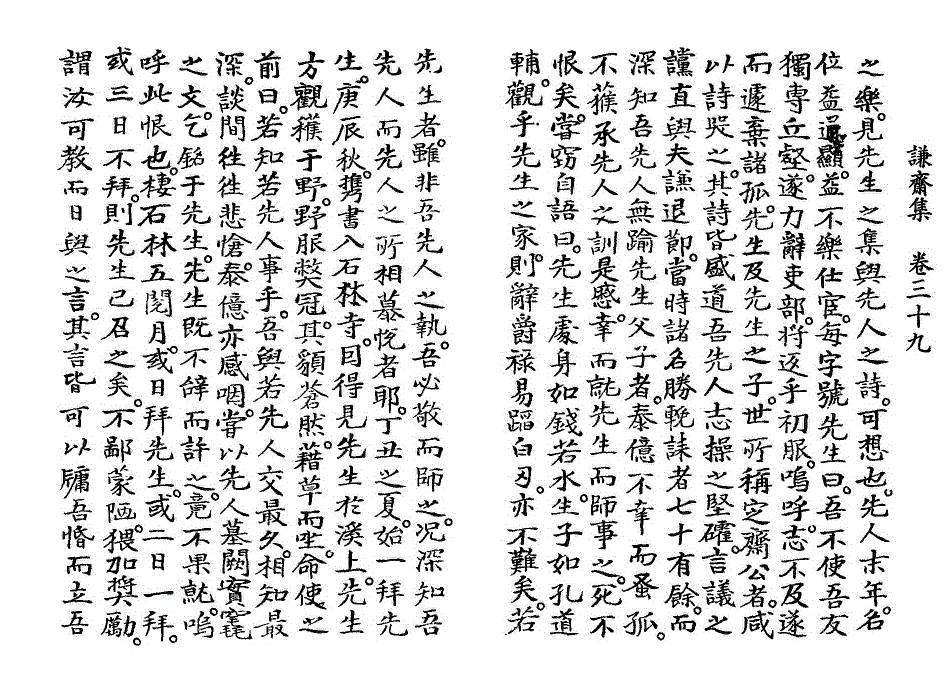 謙齋集　卷三十九
之樂。見先生之集與先人之詩。可想也。先人末年。名
位益通顯。益不樂仕宦。每字號先生曰。吾不使吾友
獨專丘壑。遂力辭吏部。將返乎初服。嗚呼。志不及遂
而遽棄諸孤。先生及先生之子。世所稱定齋公者。咸
以詩哭之。其詩皆盛道吾先人志操之堅確。言議之
讜直與夫謙退節。當時諸名勝輓誄者七十有餘。而
深知吾先人無踰先生父子者。泰億不幸而蚤孤。
不獲承先人之訓是慼。幸而就先生而師事之。死不
恨矣。嘗竊自語曰。先生處身如錢若水。生子如孔道
輔。觀乎先生之家。則辭爵祿易。蹈白刃。亦不難矣。若
先生者。雖非吾先人之執。吾必敬而師之。况深知吾
先人而先人之所相慕悅者耶。丁丑之夏。始一拜先
生。庚辰秋。携書入石林寺。因得見先生於溪上。先生
方觀穫于野。野服弊冠。其貌蒼然。藉草而坐。命使之
前曰。若知若先人事乎。吾與若先人交最久。相知最
深。談間往往悲愴。泰億亦感咽。嘗以先人墓闕實窀
之文。乞銘于先生。先生旣不辭而許之。竟不果就。嗚
呼此恨也。棲石林五閱月。或日拜先生。或二日一拜。
或三日不拜。則先生已召之矣。不鄙蒙陋。猥加奬勵。
謂汝可敎而日與之言。其言皆可以牖吾惛而立吾